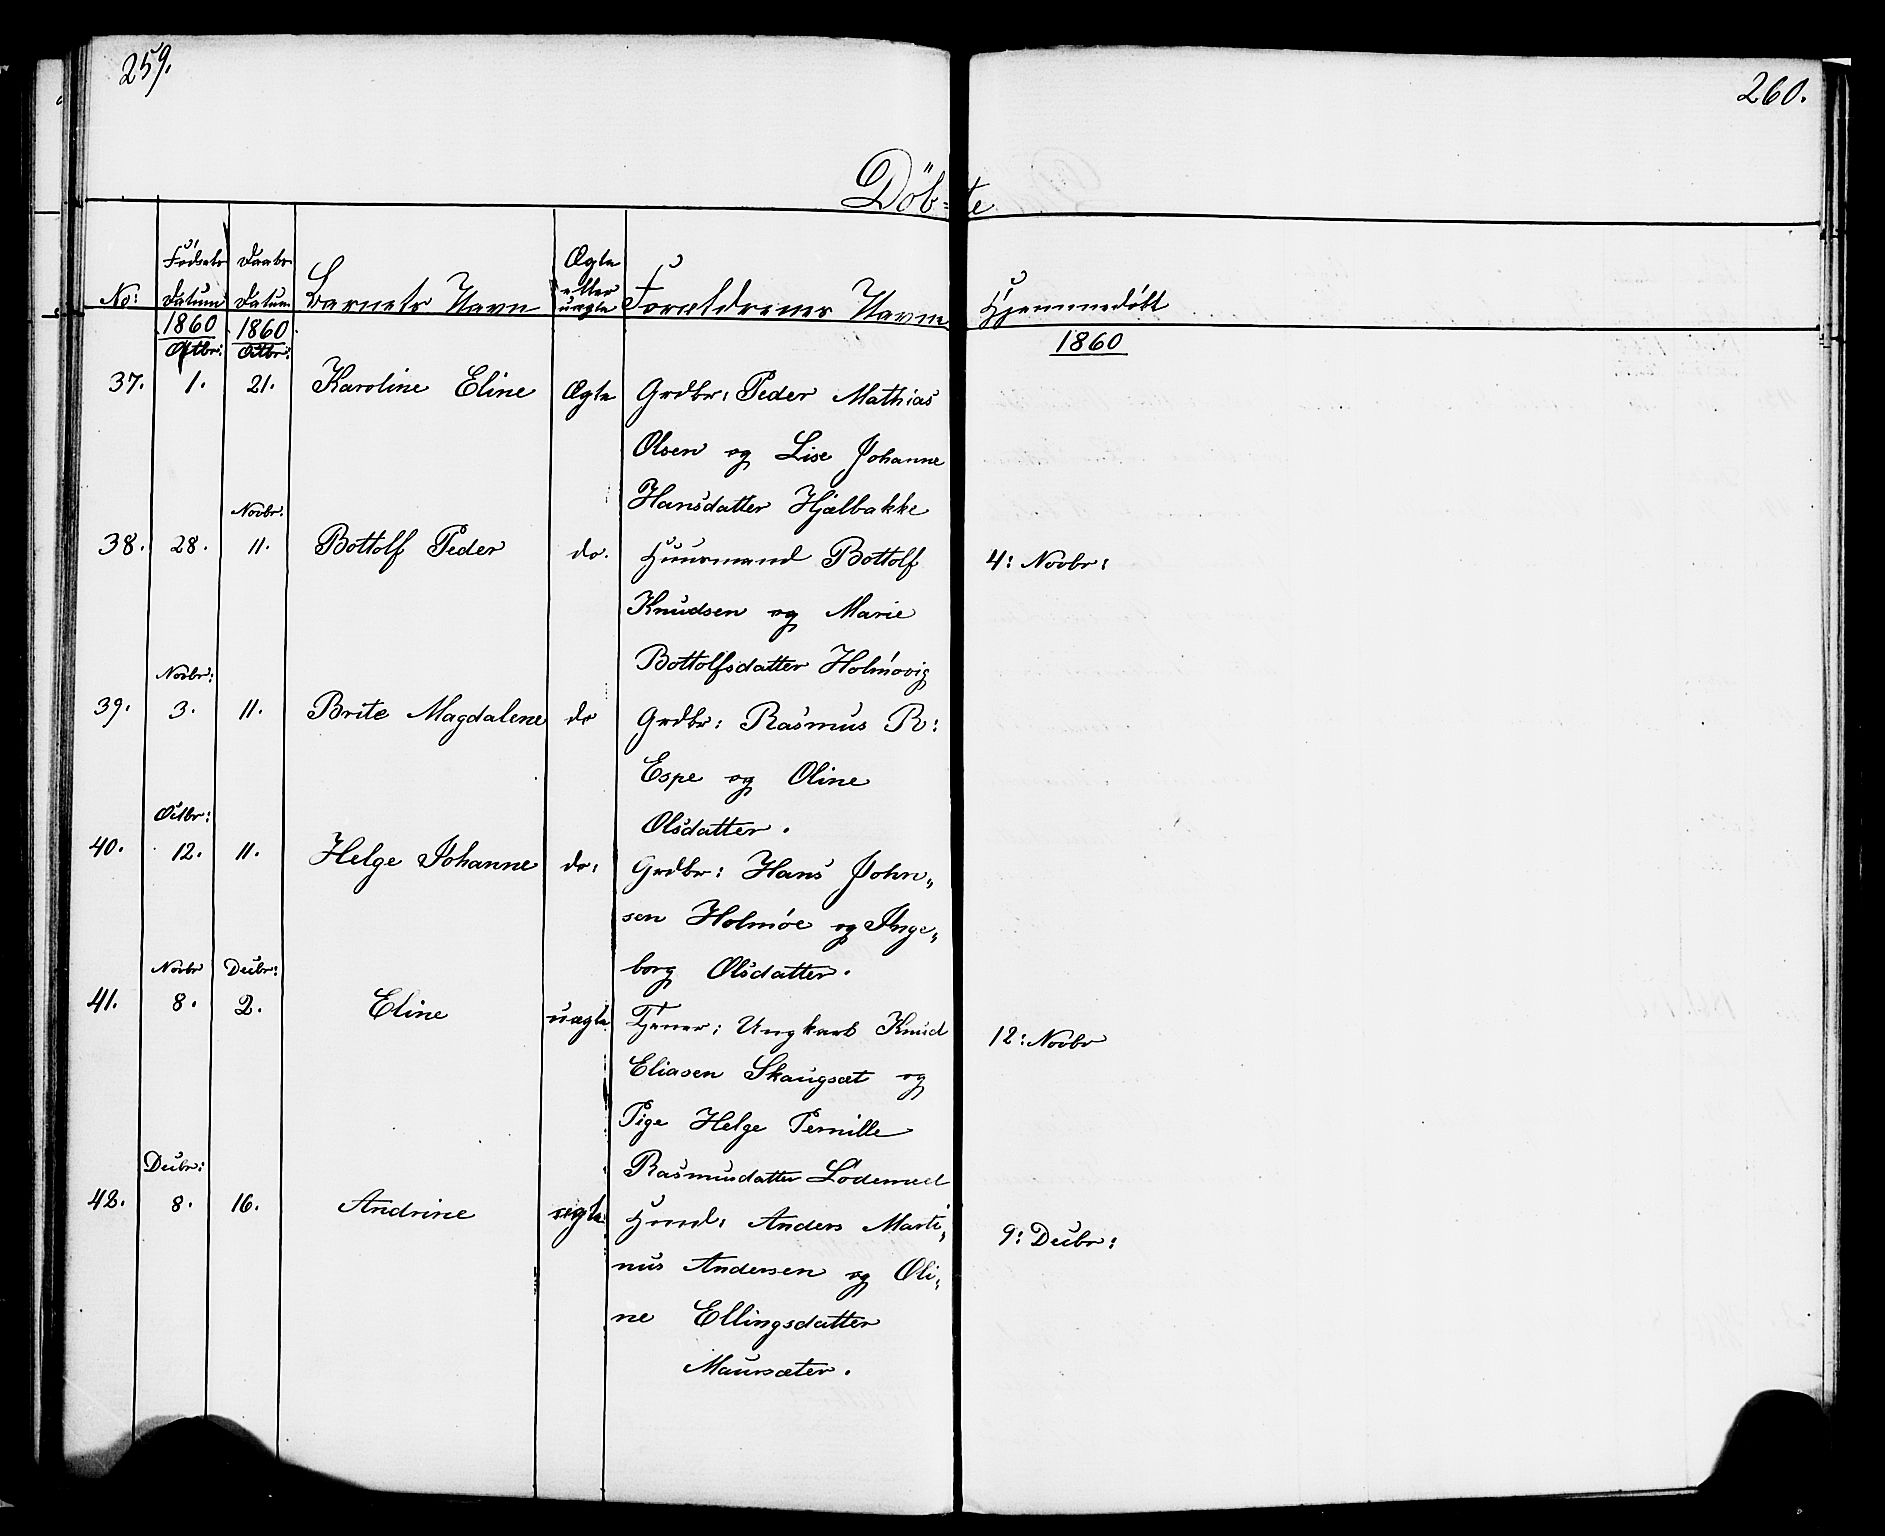 259.
260.
Döb-te
No: Fødsels Datum Daabs Datum Barnets Navn Ægte eller uægte Forældrenes Navne Hjemmedøbt
1860 1860 1860
Octbr: Octbr:
37. 1. 21. Karoline Eline Ægte Grdbr: Peder Mathias
Olsen og Lise Johanne
Hansdatter Hjælbakke
Novbr:
38. 28. 11. Bottolf Peder do. Huusmand Bottolf 4: Novbr:
Knudsen og Marie
Bottolfsdatter Holmøvig
Novbr:
39. 3. 11. Brite Magdalene do Grdbr: Rasmus R:
Espe og Oline
Olsdatter.
Octbr:
40. 12. 11. Helge Johanne do: Grdbr: Hans John„
sen Holmöe og Inge„
borg Olsdatter.
Novbr Decbr:
41. 8. 2. Eline uægte Tjener: Ungkarl Knud 12: Novbr
Eliasen Skaugsæt og
Pige Helge Pernille
Rasmusdatter Lødemed
Decbr:
42. 8. 16. Andrine ægte Huusm: Anders Marti„ 9: Decbr:
nus Andersen og Oli„
ne Ellingsdatter
Maursæter.